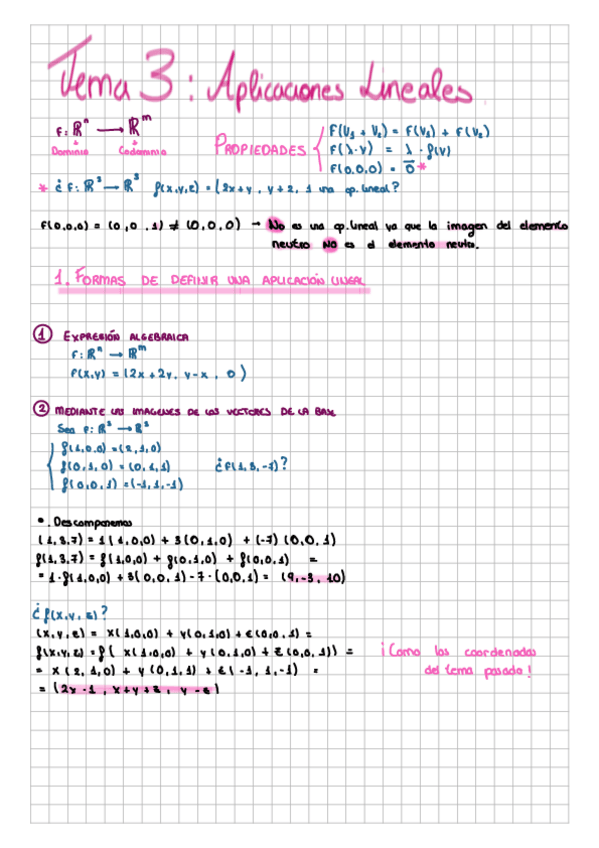 Tema 3: Aplicaciones Lineales
f: ℝⁿ → ℝᵐ
Dominio Codominio
PROPIEDADES { F(V₁ + V₂) = F(V₁) + F(V₂)
F(λ·V) = λ · f(V)
F(0,0,0) = 0⃗ *
* ¿ F: ℝ³ → ℝ³ f(x,y,z) = (2x+y, y+2, 1 una ap. lineal?
F(0,0,0) = (0,0,1) ≠ (0,0,0) → No es una ap. lineal ya que la imagen del elemento
neutro NO es el elemento neutro.
1. FORMAS DE DEFINIR UNA APLICACIÓN LINEAL
① EXPRESIÓN ALGEBRAICA
F: ℝⁿ → ℝᵐ
F(x,y) = (2x+2y, y-x, 0)
② MEDIANTE LAS IMAGENES DE LOS VECTORES DE LA BASE
Sea F: ℝ³ → ℝ³
f(1,0,0) = (2,1,0)
f(0,1,0) = (0,1,1) ¿F(1,3,-7)?
f(0,0,1) = (-1,1,-1)
. Descomponemos
(1,3,7) = 1(1,0,0) + 3(0,1,0) + (-7)(0,0,1)
f(1,3,7) = f(1,0,0) + f(0,1,0) + f(0,0,1) =
= 1·f(1,0,0) + 3(0,0,1) - 7·(0,0,1) = (9,-3,10)
¿f(x,y,z)?
(x,y,z) = x(1,0,0) + y(0,1,0) + z(0,0,1) =
f(x,y,z) = f( x(1,0,0) + y(0,1,0) + z(0,0,1)) = ¡Como las coordenadas
= x(2,1,0) + y(0,1,1) + z(-1,1,-1) = del tema pasado!
= (2x-1, x+y+z, y-z)